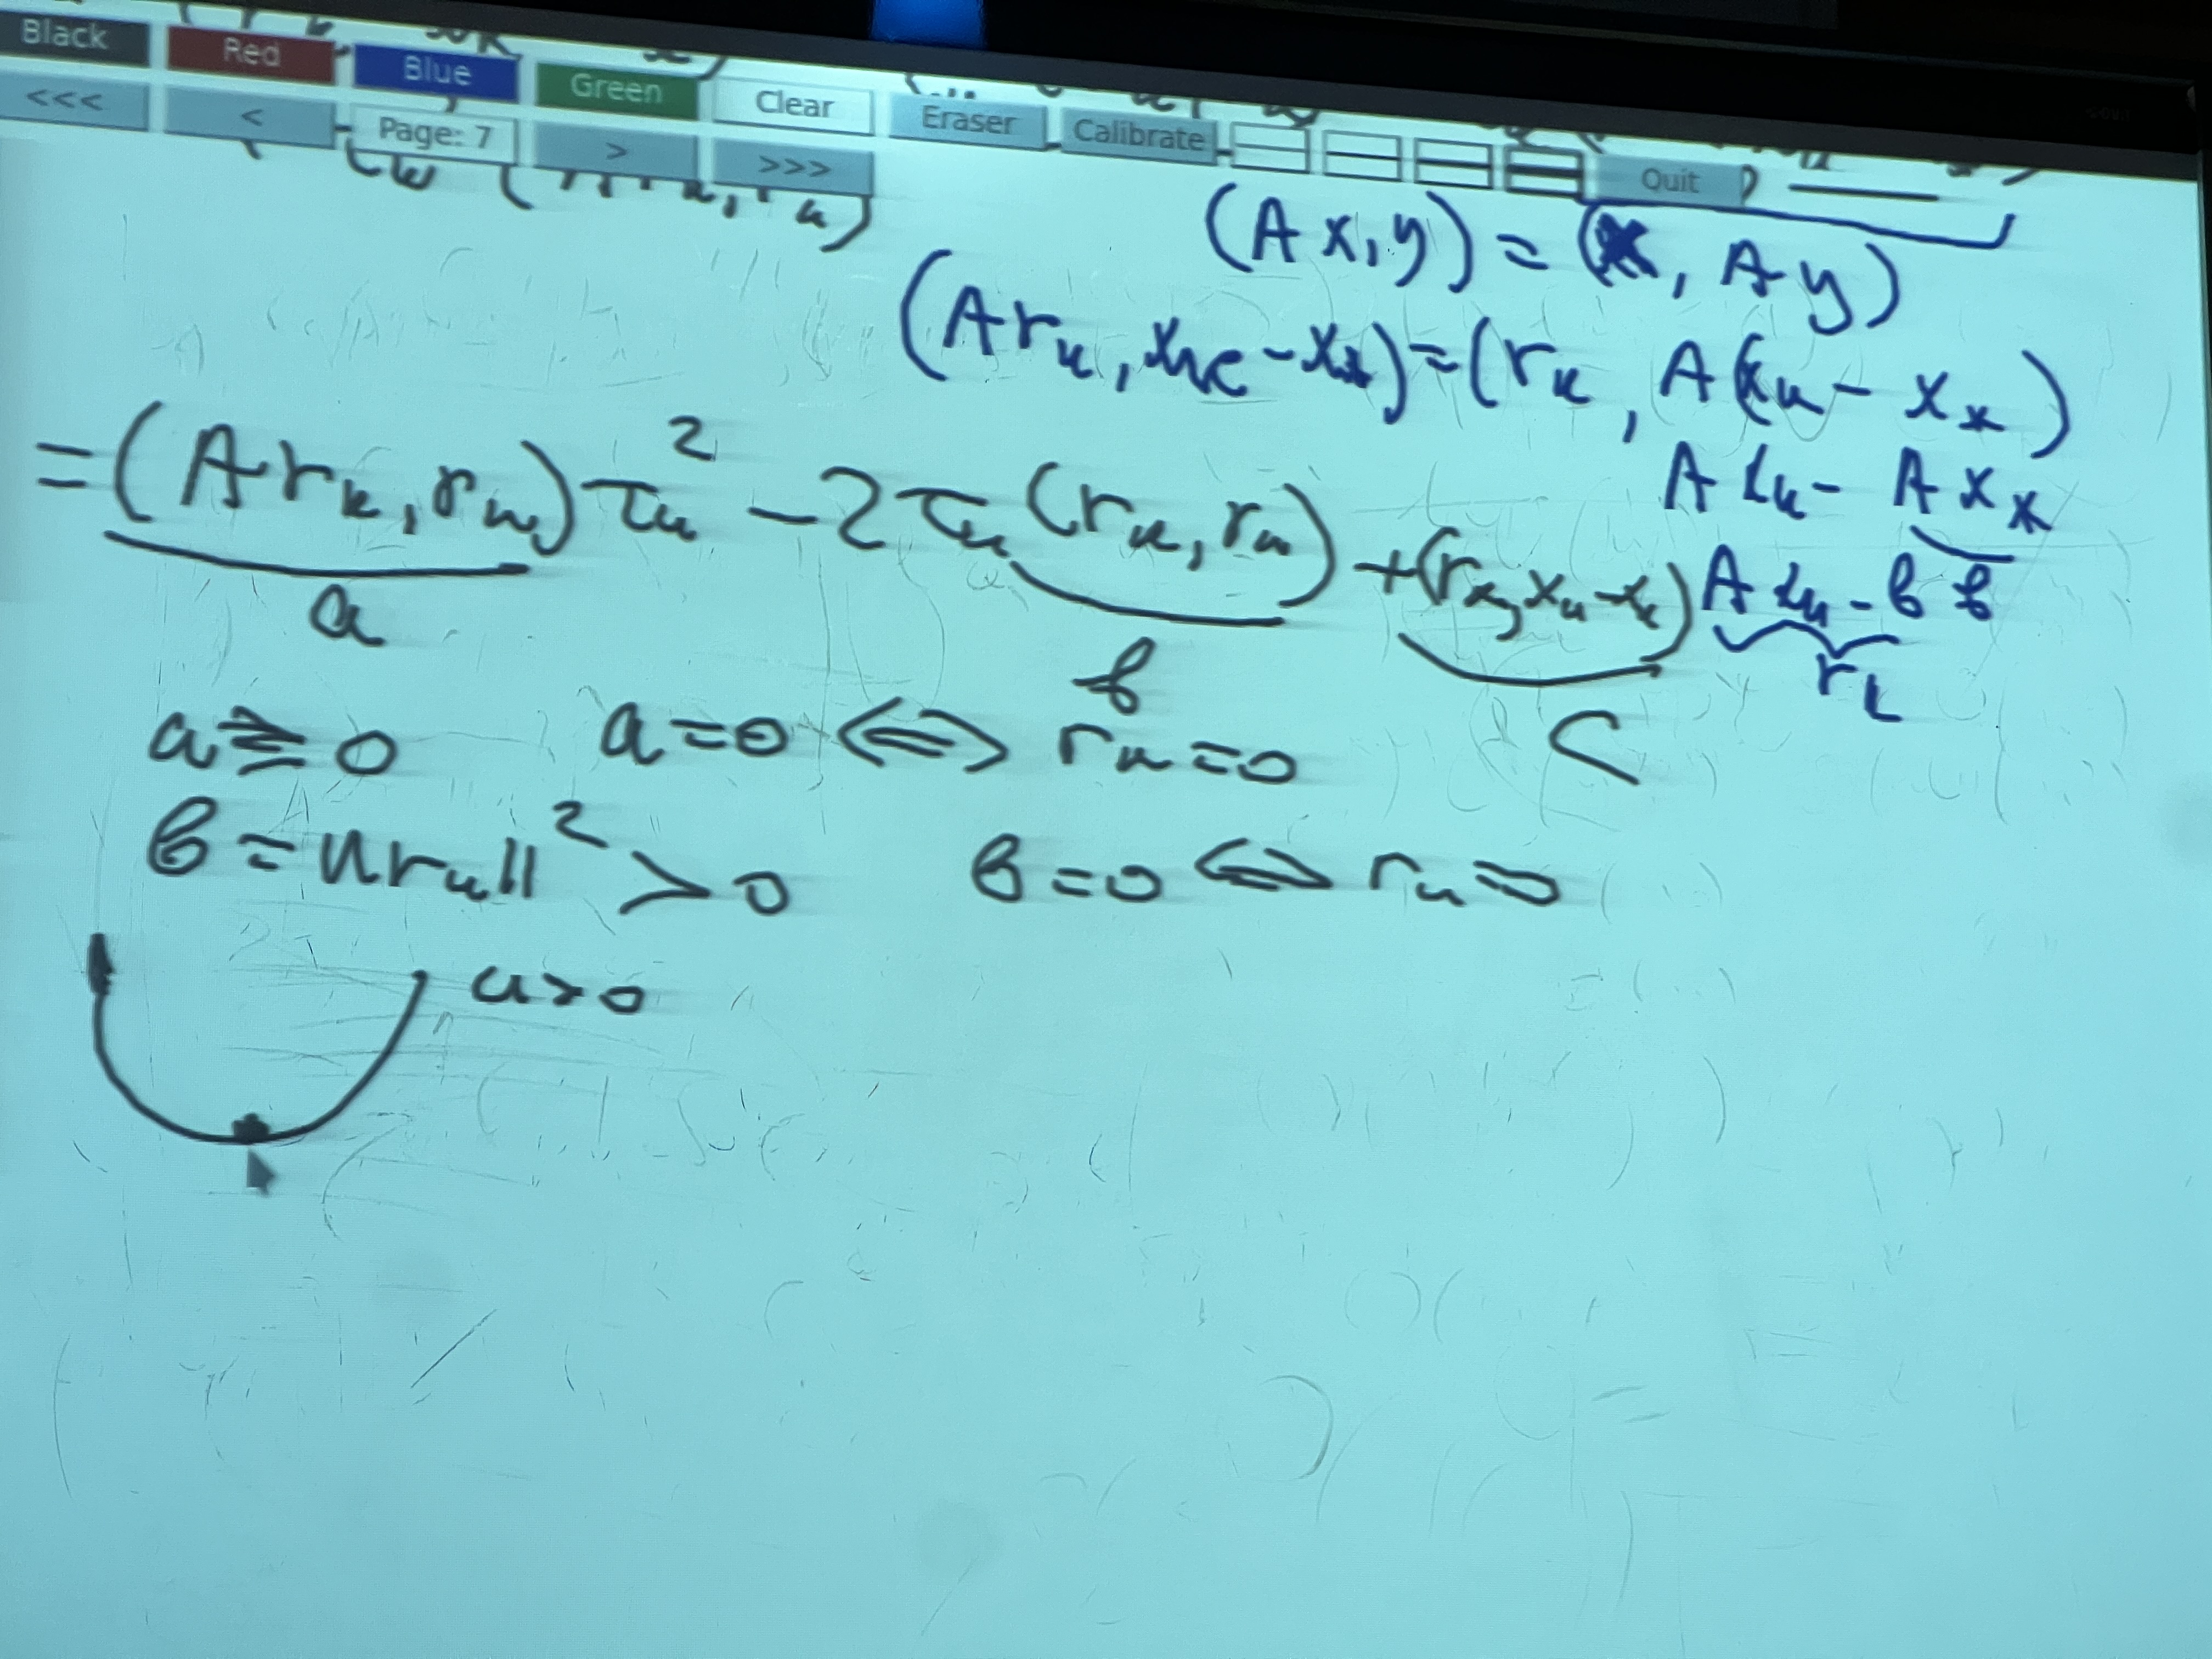 Black Red Blue Green Clear Eraser Calibrate Quit
<<< < Page: 7 > >>>
(Ax, y) = (x, Ay)
(Ar_k, x_k - x_*) = (r_k, A(x_k - x_*)
= (Ar_k, r_k) τ_k² - 2τ_k (r_k, r_k) + (r_k, x_k - x_*)
Ax_k - Ax_*
b
Ax_k - b
r_k
a
b
c
a ≥ 0 a = 0 <=> r_k = 0
b = ||r_k||² > 0 b = 0 <=> r_k = 0
a > 0